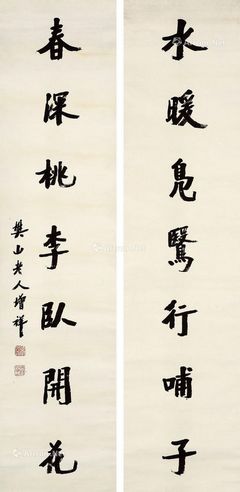 水暖鳧鷖行哺子
春深桃李臥開花
樊山老人增祥